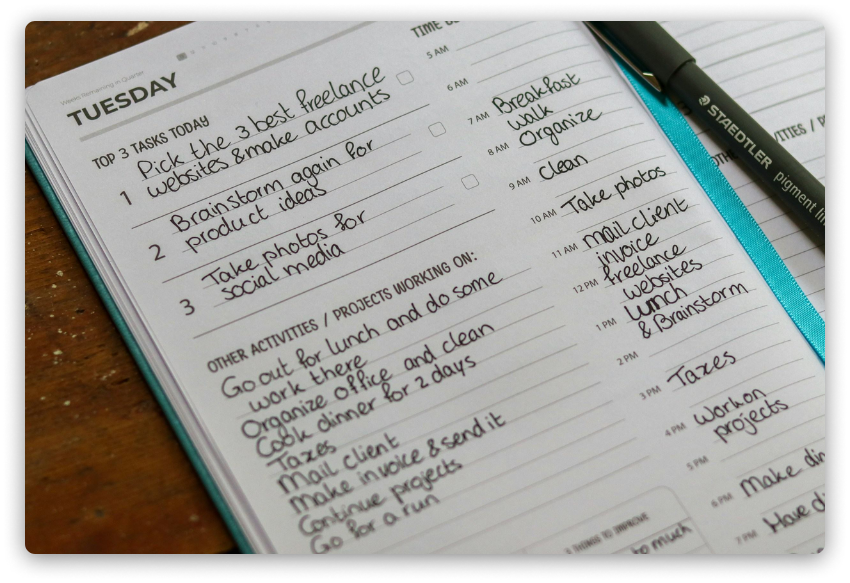 Weeks Remaining in Quarter
TUESDAY
TOP 3 TASKS TODAY
1 Pick the 3 best freelance
websites & make accounts
2 Brainstorm again for
product ideas
3 Take photos for
social media
OTHER ACTIVITIES / PROJECTS WORKING ON:
Go out for lunch and do some
work there
Organize office and clean
Cook dinner for 2 days
Taxes
Mail client
Make invoice & send it
Continue projects
Go for a run
3 THINGS TO IMPROVE
much
TIME
5 AM
6 AM
7 AM Breakfast
walk
8 AM Organize
9 AM Clean
10 AM Take photos
11 AM mail client
invoice
12 PM freelance
websites
1 PM Lunch
& Brainstorm
2 PM
3 PM Taxes
4 PM Work on
projects
5 PM
6 PM Make
7 PM Have
STAEDTLER
pigment